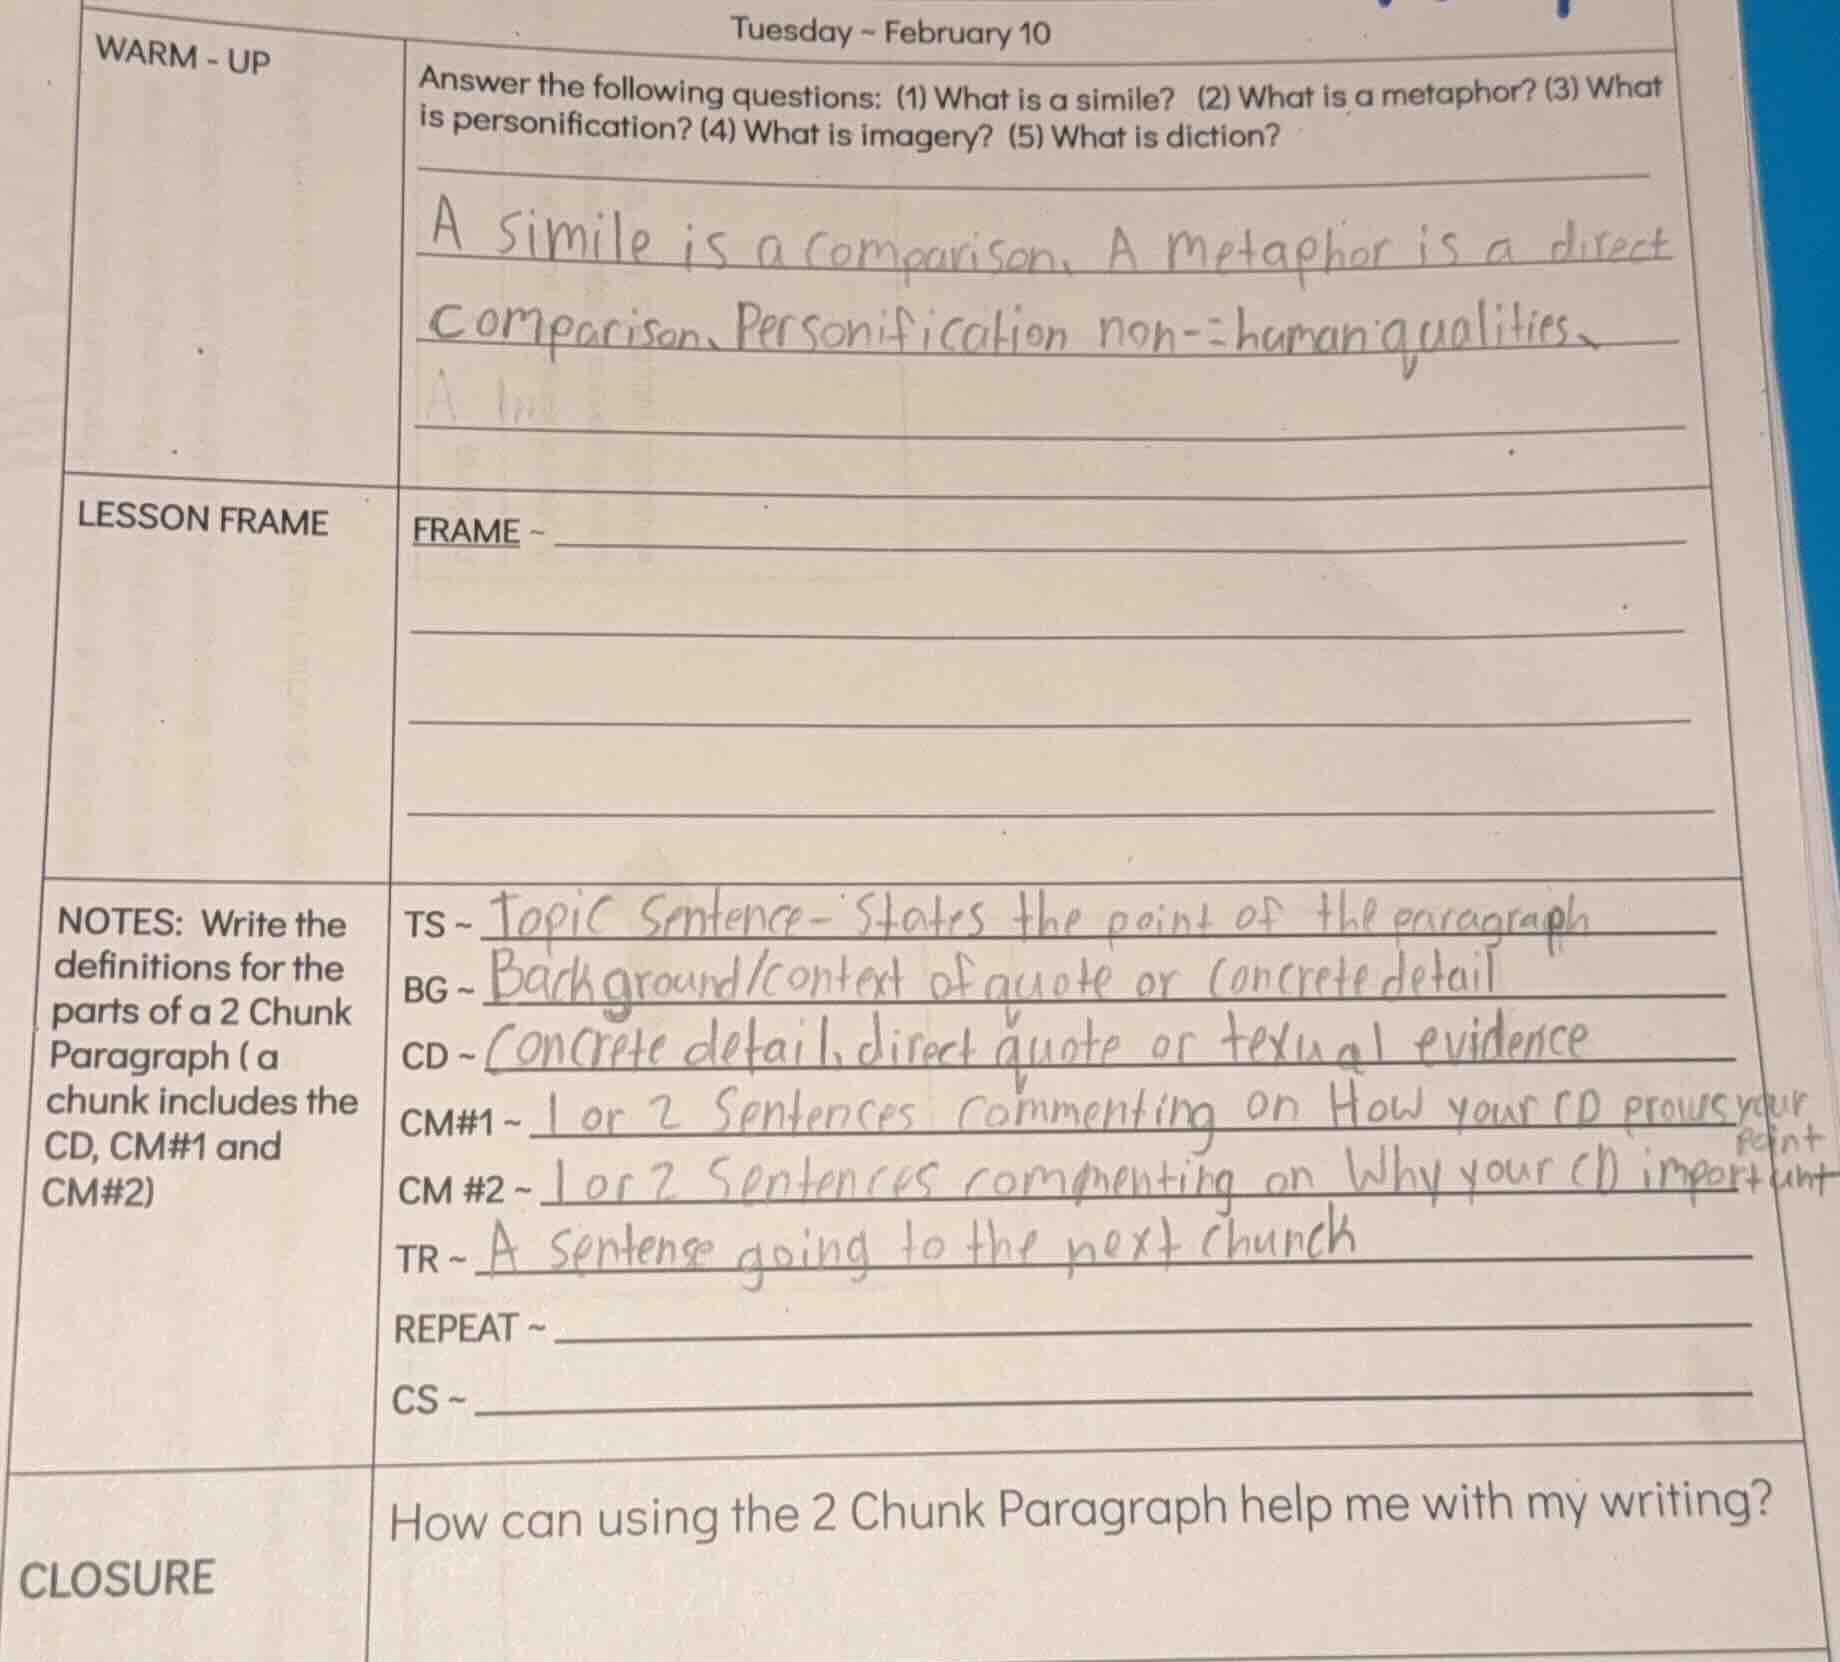 Tuesday ~ February 10
WARM - UP
Answer the following questions: (1) What is a simile? (2) What is a metaphor? (3) What
is personification? (4) What is imagery? (5) What is diction?
A simile is a comparison. A metaphor is a direct
comparison. Personification non-=human qualities.
A Im
LESSON FRAME
FRAME ~
NOTES: Write the
definitions for the
parts of a 2 Chunk
Paragraph ( a
chunk includes the
CD, CM#1 and
CM#2)
TS ~ Topic Sentence - States the point of the paragraph
BG ~ Background/context of quote or concrete detail
CD ~ Concrete detail, direct quote or texual evidence
CM#1 ~ 1 or 2 Sentences commenting on How your CD prows your
point
CM #2 ~ 1 or 2 Sentences commenting on Why your CD important
TR ~ A sentense going to the next chunck
REPEAT ~
CS ~
CLOSURE
How can using the 2 Chunk Paragraph help me with my writing?